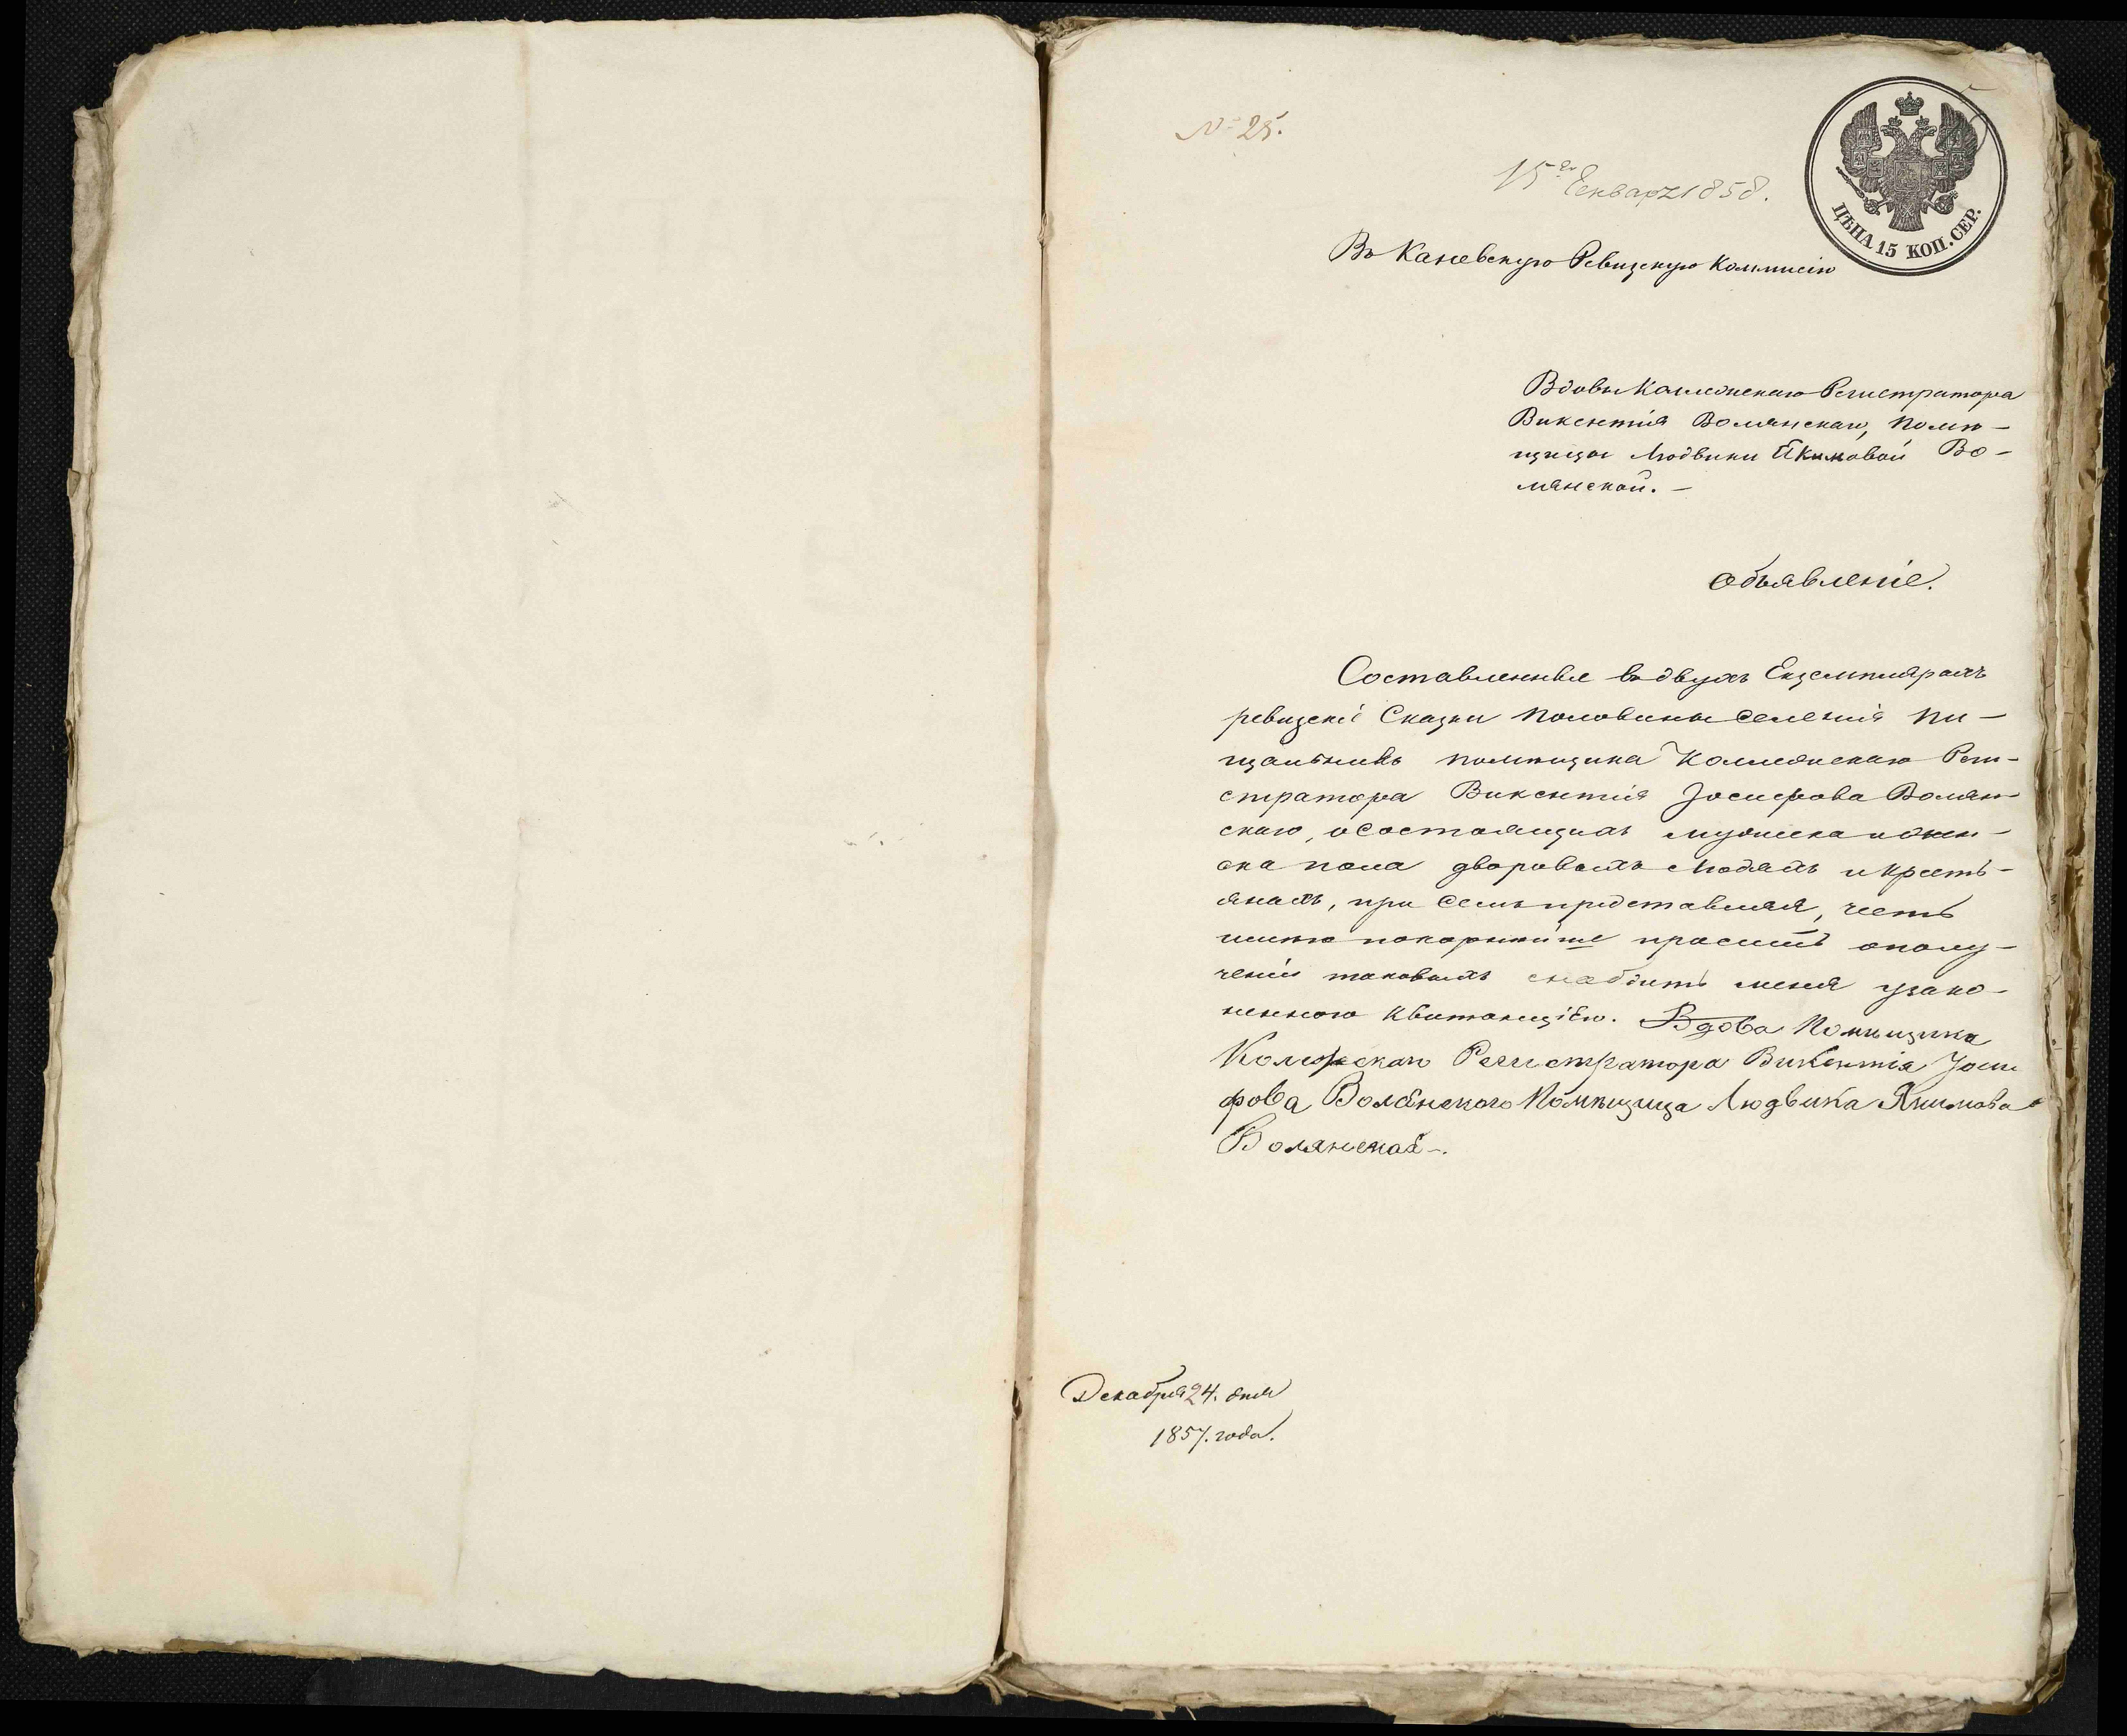 № 25.
5
15го Генваря 1858.
ЦѢНА 15 КОП. СЕР.
Въ Каневскую Ревизскую Коммисію
Вдовы Коллежскаго Регистратора
Викентія Волянскаго, Помѣ-
щицы Людвики Якимовой Во-
лянской.-
Объявленіе.
Составленныя въ двухъ Екземплярахъ
ревизскіе Сказки половины Селенія Пи-
щальникъ помѣщика Коллежскаго Реги-
стратора Викентія Іосифова Волян-
скаго, о состоящихъ мужеска и жен-
ска пола дворовыхъ людяхъ и кресть-
янахъ, при Семъ представляя, честь
имѣю покорнѣйше просить о полу-
ченіи таковыхъ снабдить меня узако-
ненною Квитанціею. Вдова Помѣщика
Колежскаго Регистратора Викентія Іоси
фова Волянского Помѣщица Людвика Якимова
Волянская-.
Декабря 24. дня
1857. года.